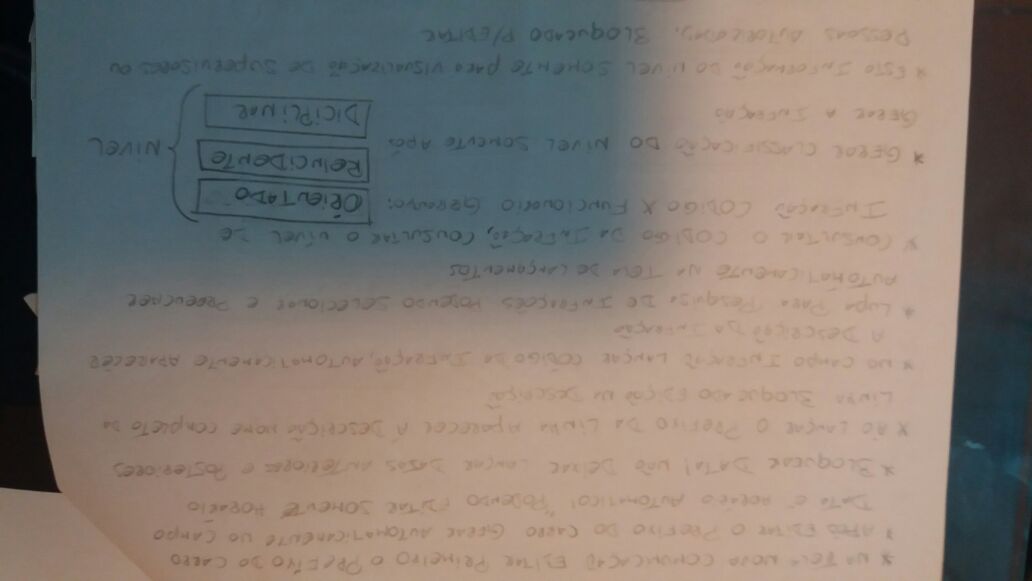 * NA TELA NOVA COMUNICAÇÃO EDITAR PRIMEIRO O PREFIXO DO CARRO
* APÓS EDITAR O PREFIXO DO CARRO GERAR AUTOMATICAMENTE NO CAMPO
DATA E HORÁRIO AUTOMATICO! "PODENDO EDITAR SOMENTE HORÁRIO
* BLOQUEAR DATA! NÃO DEIXAR LANÇAR DATAS ANTERIORES E POSTERIORES
* AO LANÇAR O PREFIXO DA LINHA APARECER A DESCRIÇÃO NOME COMPLETO DA
LINHA BLOQUEADO EDIÇÃO NA DESCRIÇÃO
* NO CAMPO INFRAÇÃO LANÇAR CÓDIGO DA INFRAÇÃO, AUTOMATICAMENTE APARECER
A DESCRIÇÃO DA INFRAÇÃO
* LUPA PARA PESQUISA DE INFRAÇÕES PODENDO SELECIONAR E PREENCHER
AUTOMATICAMENTE NA TELA DE LANÇAMENTOS
* CONSULTAR O CODIGO DA INFRAÇÃO, CONSULTAR O NÍVEL DE
INFRAÇÃO CODIGO X FUNCIONARIO GERANDO:
ORIENTADO
REINCIDENTE
DICIPLINAR
NIVEL
* GERAR CLASSIFICAÇÃO DO NIVEL SOMENTE APÓS
GERAR A INFRAÇÃO
* ESTA INFORMAÇÃO DO NÍVEL SOMENTE PARA VISUALIZAÇÃO DE SUPERVISORES OU
PESSOAS AUTORIZADAS. BLOQUEADO P/EDITAR